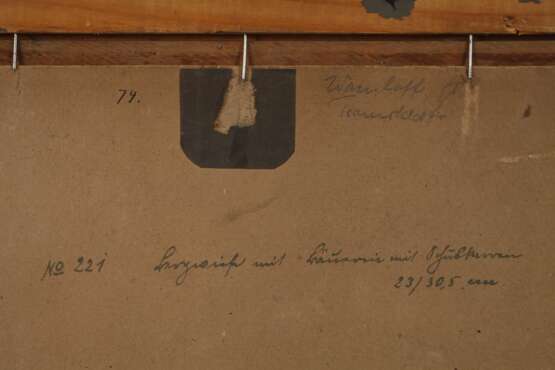 74.
No 221 Bergwiese mit Bäuerin mit Schubkarren
23/30,5 cm